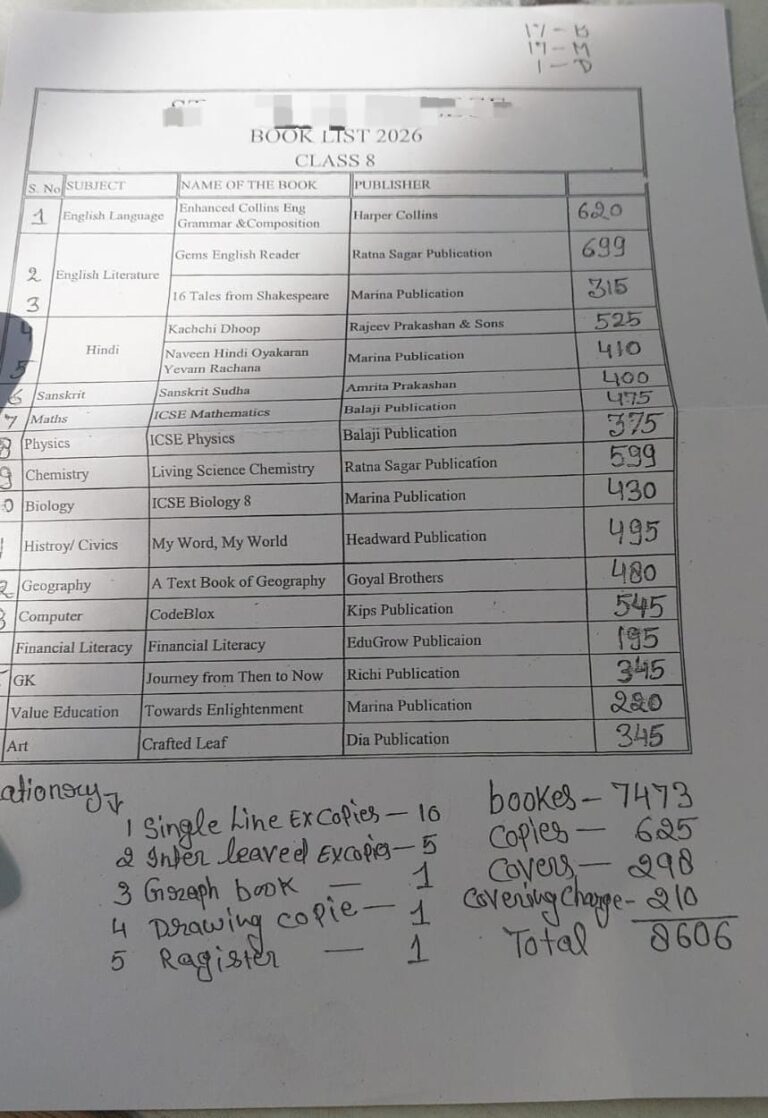 17 - B
17 - M
1 - D
BOOK LIST 2026
CLASS 8
S. No SUBJECT NAME OF THE BOOK PUBLISHER
1 English Language Enhanced Collins Eng Grammar &Composition Harper Collins 620
2 English Literature Gems English Reader Ratna Sagar Publication 699
3 16 Tales from Shakespeare Marina Publication 315
4 Hindi Kachchi Dhoop Rajeev Prakashan & Sons 525
5 Naveen Hindi Oyakaran Yevam Rachana Marina Publication 410
6 Sanskrit Sanskrit Sudha Amrita Prakashan 400
7 Maths ICSE Mathematics Balaji Publication 475
8 Physics ICSE Physics Balaji Publication 375
9 Chemistry Living Science Chemistry Ratna Sagar Publication 599
0 Biology ICSE Biology 8 Marina Publication 430
Histroy/ Civics My Word, My World Headward Publication 495
2 Geography A Text Book of Geography Goyal Brothers 480
3 Computer CodeBlox Kips Publication 545
Financial Literacy Financial Literacy EduGrow Publicaion 195
GK Journey from Then to Now Richi Publication 345
Value Education Towards Enlightenment Marina Publication 220
Art Crafted Leaf Dia Publication 345
ationory
1 Single Line Ex Copies - 10
2 Inter leaved Excopies - 5
3 Graph book - 1
4 Drawing copie - 1
5 Ragister - 1
bookes - 7473
copies - 625
covers - 298
Covering Charge - 210
Total 8606